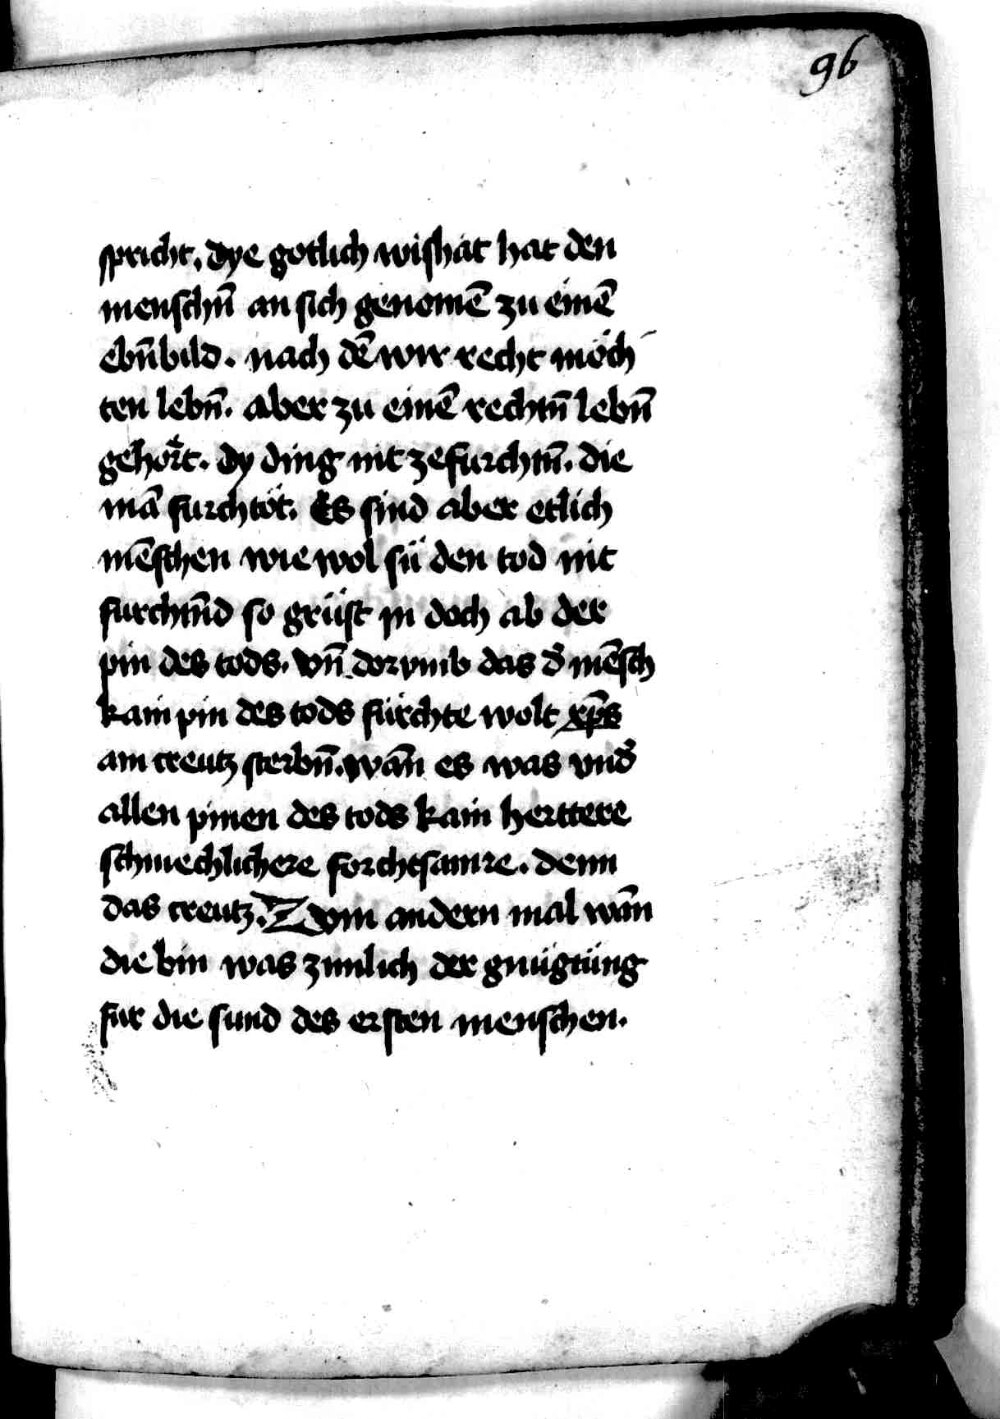 96
spricht. Dye gotlich wishat hat den
menschn̄ an sich genomē zu einē
ebn̄bild. nach dē wir recht möch
ten lebn̄. aber zu einē rechtn̄ lebn̄
gehört. dy ding nit zefurchtn̄. die
mā furchtöt. Es sind aber etlich
mēschen wie wol sü den tod nit
furchtn̄d so grüst in doch ab der
pin des tods. vn̄ dorvmb das d̄ mēsch
kain pin des tods fürchte wolt xp̄s
am creutz sterbn̄. wān es was vnd̄
allen pinen des tods kain herttere
schmechlichere forchtsamre. denn
das creutz. Zvm andern mal wān
die bin was zimlich der gnügtüng
für die sund des ersten menschen.